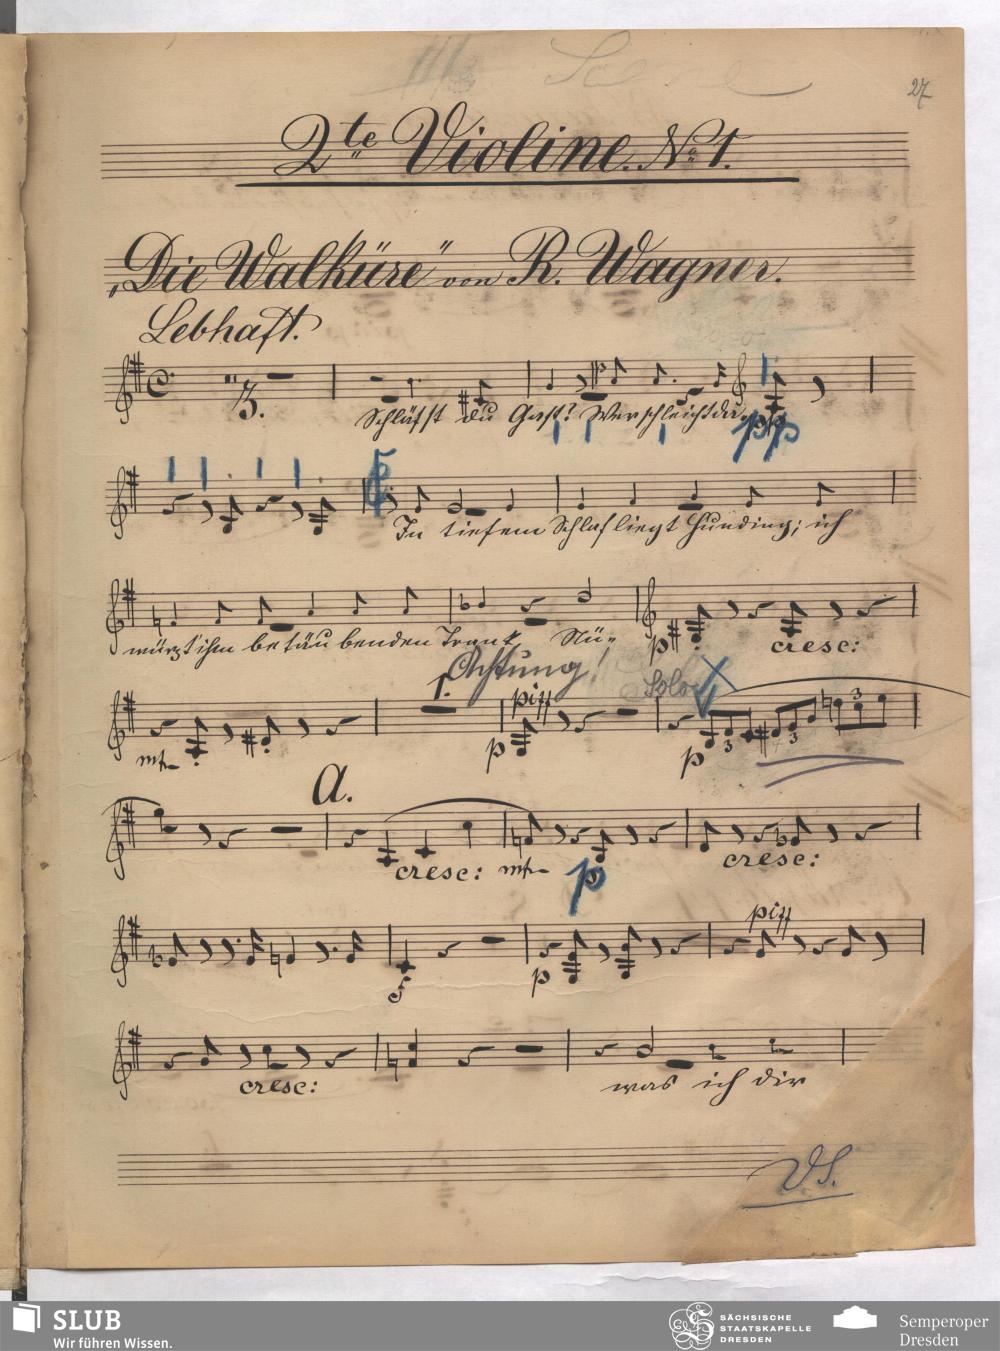 III. Scene
27
2te Violine. No 1.
„Die Walküre" von R. Wagner.
Lebhaft.
13.
Schläfst du Gast? Wer schleicht da.
pp
In tiefem Schlaf liegt Hunding; ich
würzt' ihm betäubenden Trank. Nü-
p cresc:
Achtung!
1.
mf p pizz Solo p 3 3 3
A.
cresc: mf p cresc:
p pizz
cresc: was ich dir
VS.
SLUB
Wir führen Wissen.
SÄCHSISCHE
STAATSKAPELLE
DRESDEN
Semperoper
Dresden